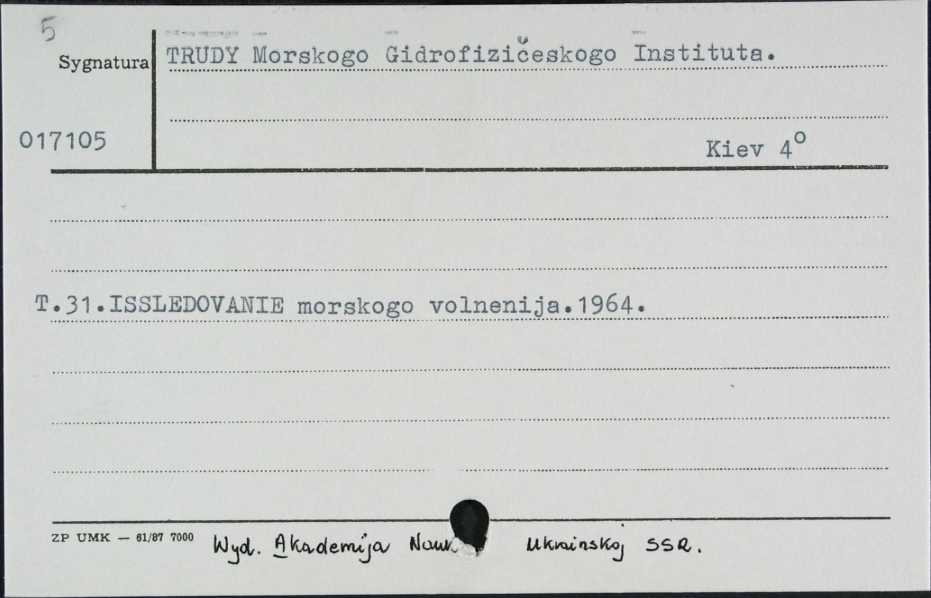 5
Sygnatura
TRUDY Morskogo Gidrofizičeskogo Instituta.
017105
Kiev 4°
T.31.ISSLEDOVANIE morskogo volnenija.1964.
ZP UMK — 61/87 7000
Wyd. Akademija Ukrainskoj SSR.